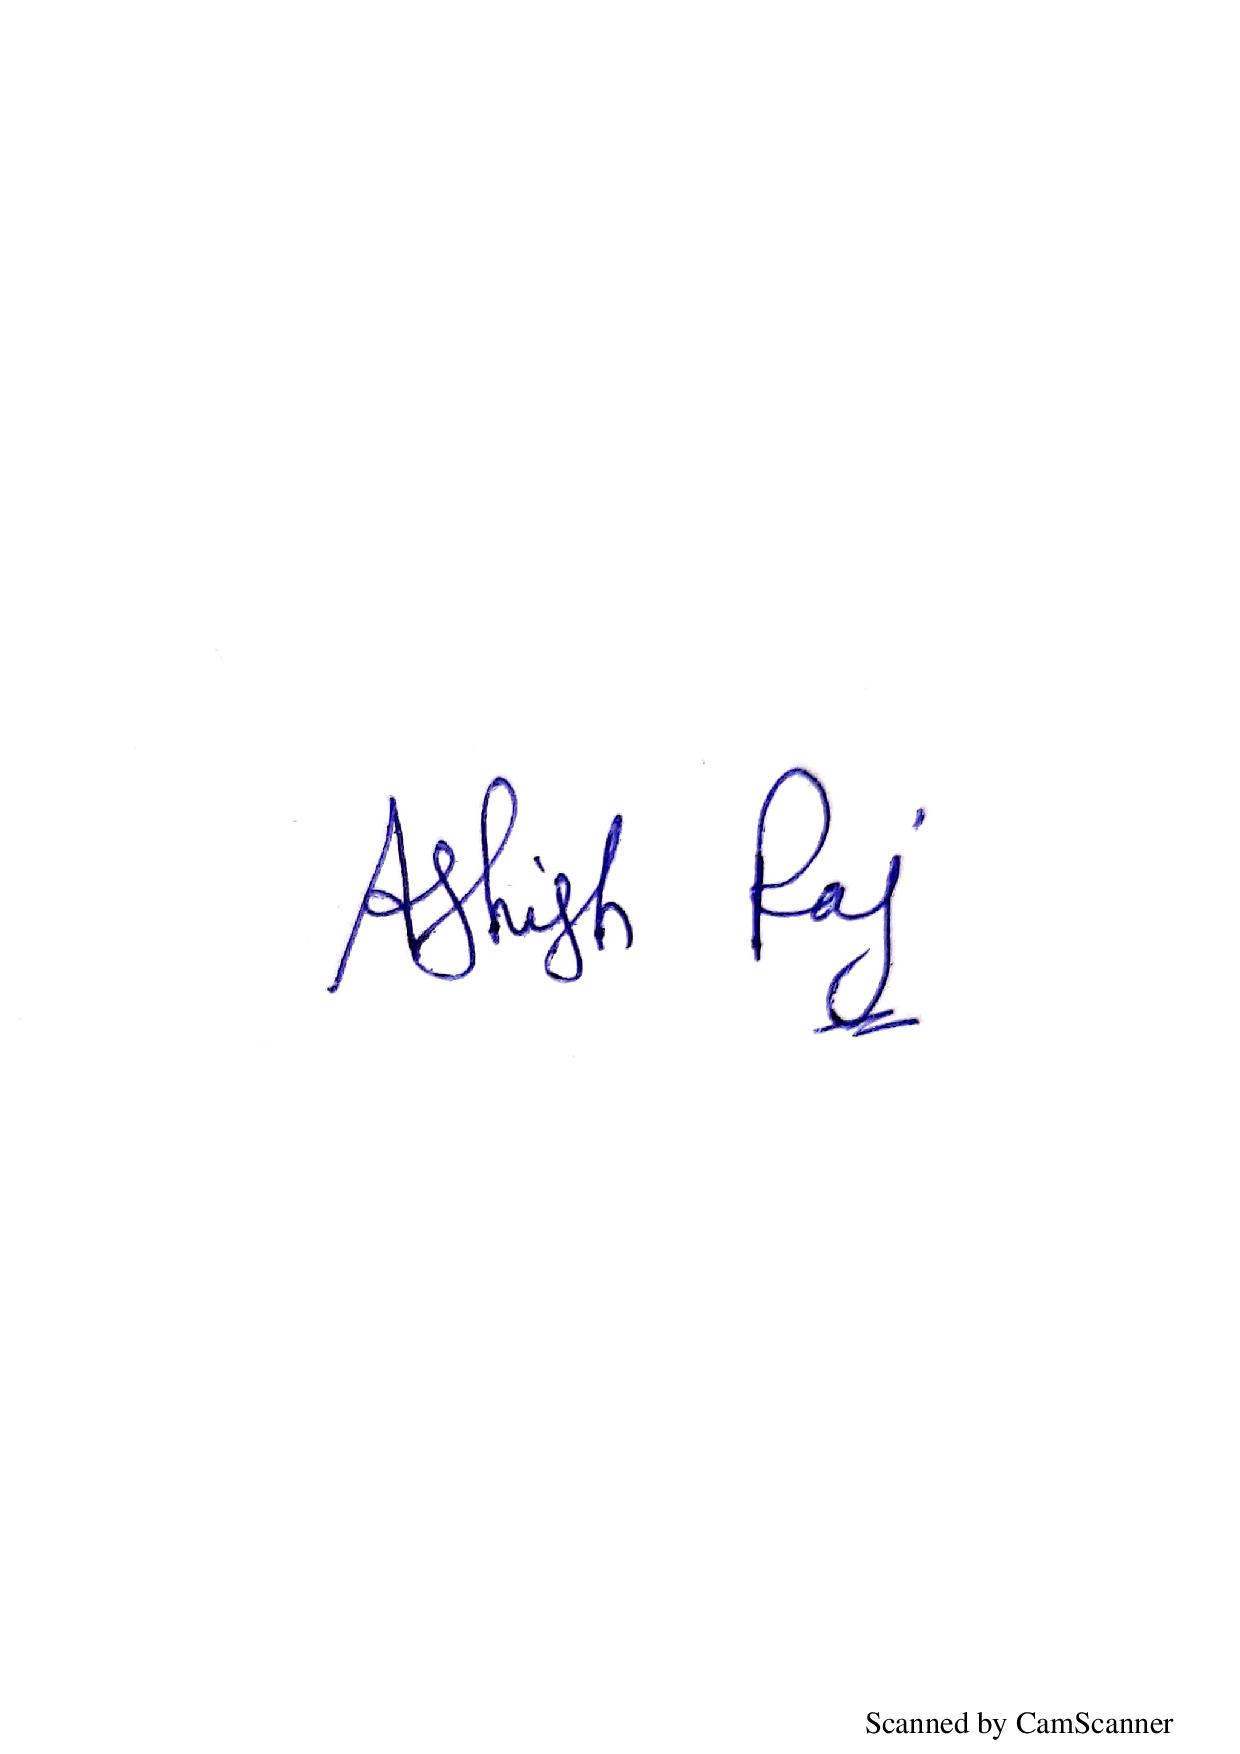 Ashish Raj
Scanned by CamScanner